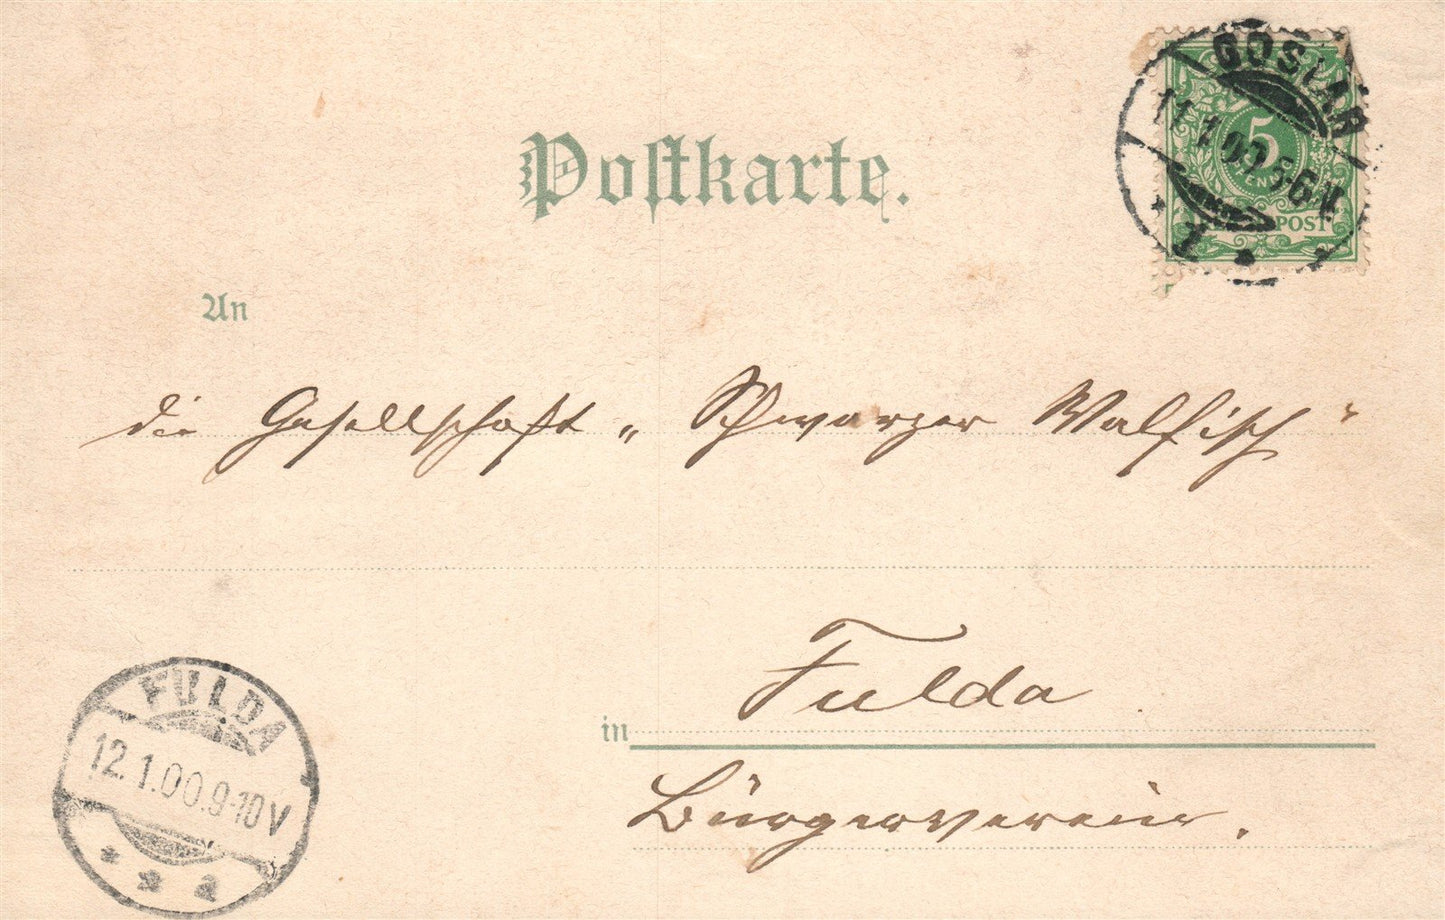 GOSLAR
11.1.00.5-6N.
1
5
POST
Postkarte.
An
die Gesellschaft „Schwarzer Walfisch"
Fulda
in
Bürgerverein.
FULDA
12.1.00.9-10V
a